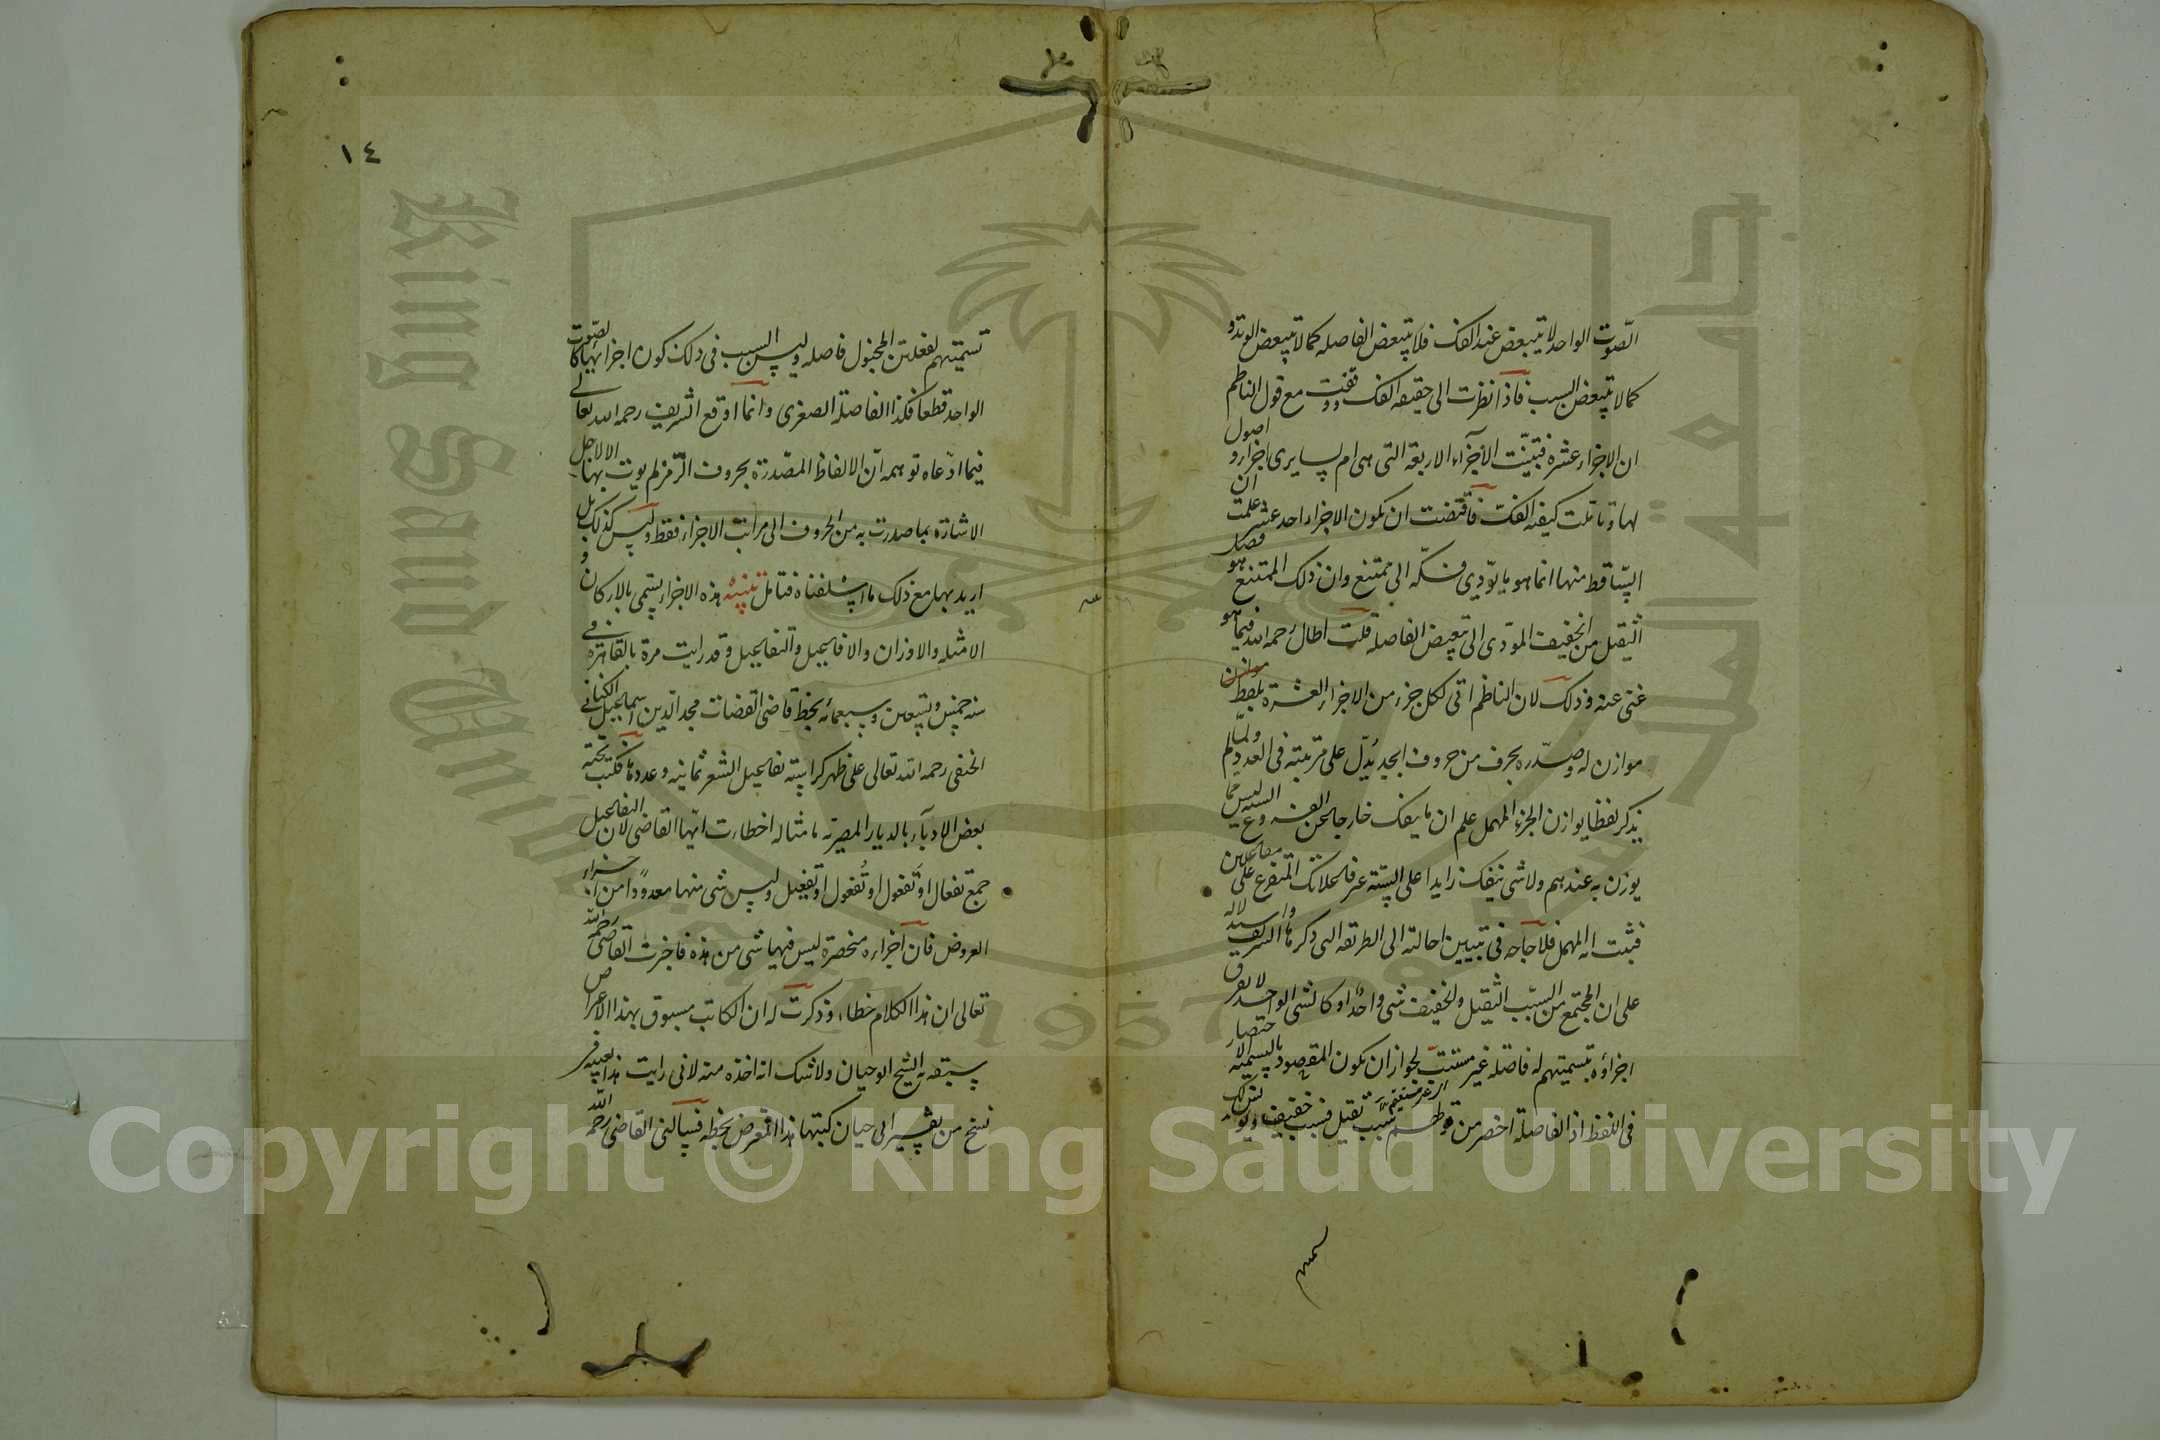 الصّوت الواحد لا يتبعض عند الفك فلا يتبعض الفاصله كما لا يتبعض الوتد و
كما لا يتبعض السبب فاذا نظرت الى حقيقه الفك ووقفت مع قول الناظم
ان الاجزاء عشره فتبيّنت الاجزآء الاربعة التى هى ام لسايرى اجزاء و اصول
لها وتاملت كيفيه الفكّ فاقتضت ان يكون الاجزاء احد عشر علمت ان
السّاقط منها انما هو ما يؤدى فكّه الى ممتنع وان ذلك الممتنع هو فصل
الثقيل من الخفيف المؤدى الى تبعيض الفاصله قلت اطال رحمه الله فيما هو
غنى عنه وذلك لان الناظم اتى لكل جزء من الاجزاء العشرة بلفظ موازن
موازن له وصدّره بحرف من حروف ابجد يدّل على مرتبته فى العدد ولما لم
يذكر لفظا يوازن الجزء المهمل علم ان ما ينفك خارجا عن العشرة
يوزن به عندهم ولا شى ينفك زايدا على الستة عير فاعلاتك المتفرع على مفاعلتن
فثبت انه المهمل فلا حاجه فى تبيين احالته الى الطريقه التى ذكرها الشريف واستدلاله
على ان المجتمع من السبب الثقيل والخفيف شى واحد او كالشى الواحد لا يفرق
اجزاؤه بتسميتهم له فاصلة غير مستتب لجواز ان يكون المقصود بالتسميه الاختصار
فى اللفظ اذ الفاصلة اخصر من قولهم سبب ثقيل فسبب خفيف
تسميتهم
تسميتهم لفعلتن المخبول فاصله وليس السبب فى ذلك كون اجزايها كالصّوت
الواحد قطعا فكذا الفاصلة الصغرى وانما اوقع الشريف رحمه الله تعالى
فيما ادّعاه توهمه انّ الالفاظ المصّدرة بحروف الرّمز لم يوت بها الا لاجل
الاشارة بما صدرت به من الحروف الى مراتب الاجزاء فقط وليس كذلك بل
اريد بها مع ذلك ما اسلفناه فتامل تنبيهٌ هذه الاجزاء يسّمى بالاركان و
الامثله والاوزان والافاعيل والتفاعيل وقد رايت مرة بالقاهرة فى
سنه خمس وتسعين وسبعمائه بخط قاضى القضات مجد الدين اسماعيل الكنانى
الحنفى رحمه الله تعالى على ظهر كراسته تفاعيل الشعر ثمانيه وعددها فكتب تحته
بعض الادبآء بالديار المصريّه ما مثاله اخطات ايّها القاضى لان التفاعيل
جمع تفعال او تَفعول او تُفعول او تفعيل وليس شى منها معدودًا من اجزاء
العروض فان اجزاءه منحصرة ليس فيها شى من هذه فاخبرت القاضى رحمه الله
تعالى ان هذا الكلام خطاء وذكرت له ان الكاتب مسبوق بهذا الاعتراض
سبقه به الشيخ ابو حيان ولا شك انه اخذه منه لانى رايت هذا بعينه فى
نسخ من تفسير ابى حيان كتبها هذا المعترض بخطه فسالنى القاضى رحمه الله
١٤
King Saud University
جامعة الملك سعود
1957
Copyright © King Saud University